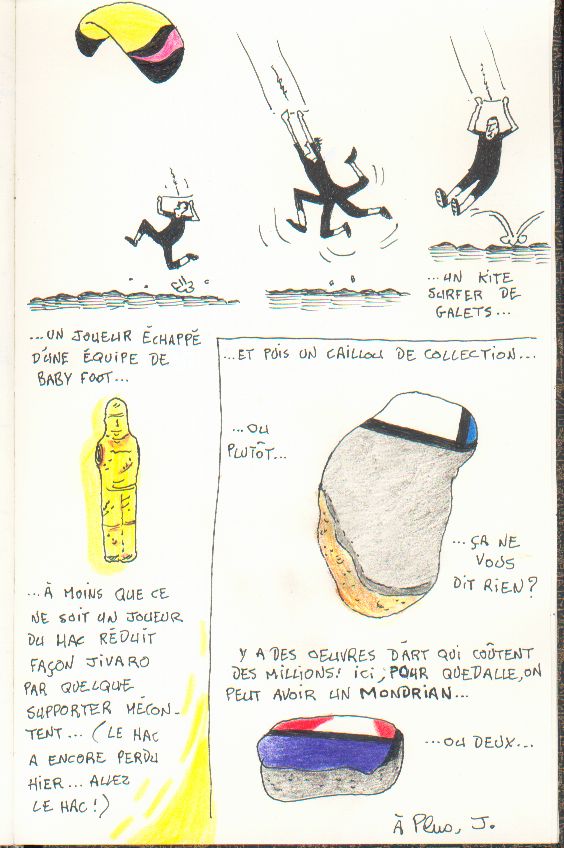 ...UN KITE
SURFER DE
GALETS...
...UN JOUEUR ÉCHAPPÉ
D'UNE ÉQUIPE DE
BABY FOOT...
...À MOINS QUE CE
NE SOIT UN JOUEUR
DU HAC RÉDUIT
FAÇON JIVARO
PAR QUELQUE
SUPPORTER MÉCON-
TENT... (LE HAC
A ENCORE PERDU
HIER... ALLEZ
LE HAC!)
...ET PUIS UN CAILLOU DE COLLECTION...
...OU
PLUTÔT...
...ÇA NE
VOUS
DIT RIEN?
Y A DES OEUVRES D'ART QUI COÛTENT
DES MILLIONS! ICI, POUR QUEDALLE, ON
PEUT AVOIR UN MONDRIAN...
...OU DEUX...
À Plus, J.